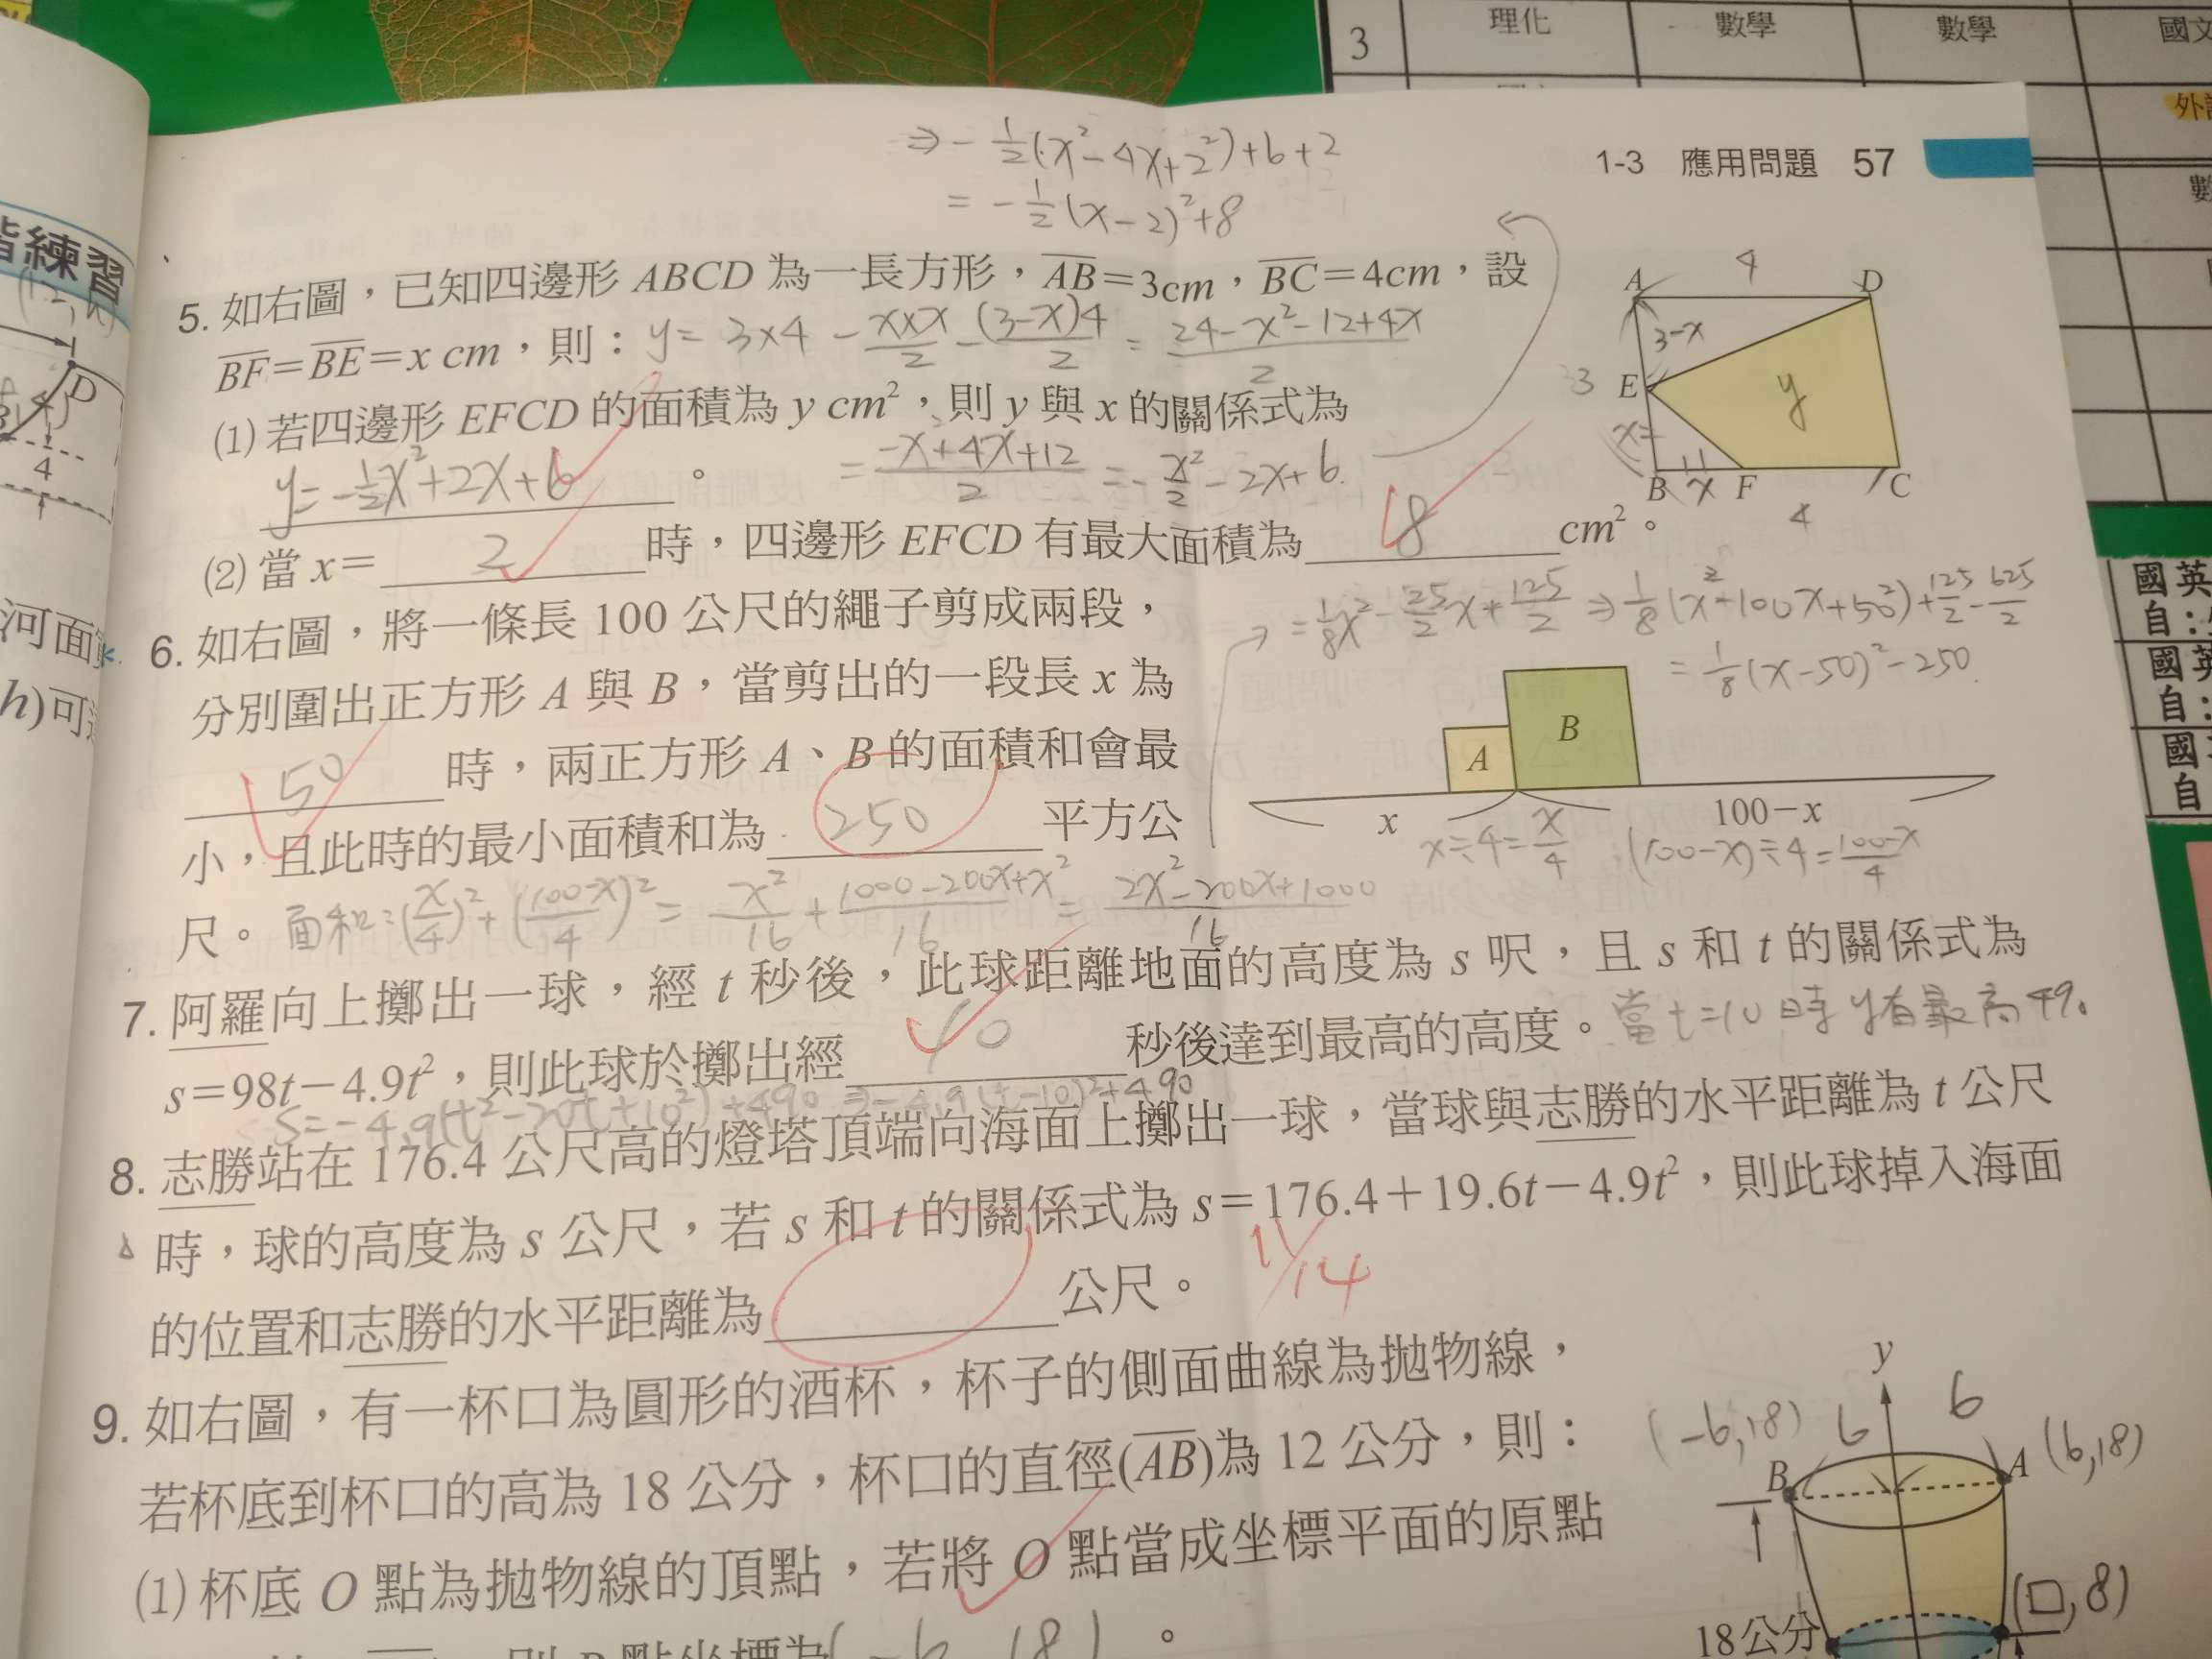 3 理化 數學 數學 國文
⇒ -1/2(x²-4x+2²)+6+2
= -1/2(x-2)²+8
1-3 應用問題 57
階練習
5. 如右圖,已知四邊形 ABCD 為一長方形,AB=3cm,BC=4cm,設
BF=BE=x cm,則:
y= 3×4 - x×x/2 - (3-x)4/2 = 24-x²-12+4x/2
(1)若四邊形 EFCD 的面積為 y cm²,則 y 與 x 的關係式為
y=-1/2x²+2x+6 。
= -x²+4x+12/2 = -x²/2-2x+6
(2)當 x= 2 時,四邊形 EFCD 有最大面積為 8 cm²。
A 4 D
3-x
3 E y
x
B x F C
4
6. 如右圖,將一條長 100 公尺的繩子剪成兩段,
分別圍出正方形 A 與 B,當剪出的一段長 x 為
50 時,兩正方形 A、B 的面積和會最
小,且此時的最小面積和為 250 平方公
尺。 面和=(x/4)²+(100-x/4)²= x²/16 + 1000-200x+x²/16 = 2x²-200x+1000/16
= 1/8x²-25/2x+125/2 ⇒ 1/8(x²-100x+50²)+125/2-625/2
= 1/8(x-50)²-250
A B
x 100-x
x÷4=x/4 (100-x)÷4=100-x/4
7. 阿羅向上擲出一球,經 t 秒後,此球距離地面的高度為 s 呎,且 s 和 t 的關係式為
s=98t-4.9t²,則此球於擲出經 10 秒後達到最高的高度。 當t=10時y有最高490
S=-4.9(t²-20t+10²)+490 ⇒ -4.9(t-10)²+490
8. 志勝站在 176.4 公尺高的燈塔頂端向海面上擲出一球,當球與志勝的水平距離為 t 公尺
時,球的高度為 s 公尺,若 s 和 t 的關係式為 s=176.4+19.6t-4.9t²,則此球掉入海面
的位置和志勝的水平距離為 公尺。
11/14
9. 如右圖,有一杯口為圓形的酒杯,杯子的側面曲線為拋物線,
若杯底到杯口的高為 18 公分,杯口的直徑(AB)為 12 公分,則:
(1)杯底 O 點為拋物線的頂點,若將 O 點當成坐標平面的原點
則 B 點坐標為(-6,18) 。
y
(-6,18) 6 6
B A (6,18)
(□,8)
18公分
D
4
河面
h)可
外
國英
自:
國英
自:
國
自